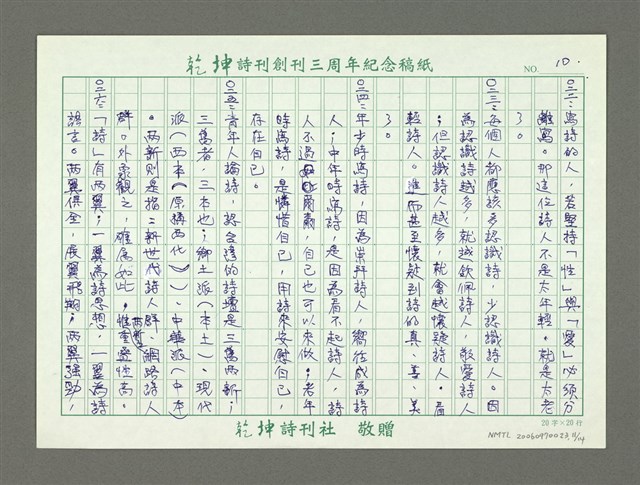 乾坤詩刊創刊三周年紀念稿紙
NO. 10.
〇三二：寫詩的人，若堅持「性」與「愛」必須分
離寫。那這位詩人不是太年輕，就是太老
了。
〇三三：每個人都應該多認識詩，少認識詩人。因
為認識詩越多，就越欽佩詩人，敬愛詩人
；但認識詩人越多，就會越懷疑詩人。看
輕詩人。進而甚至懷疑到詩的真、善、美
了。
〇三四：年少時寫詩，因為崇拜詩人，嚮往成為詩
人；中年時寫詩，是因為看不起詩人，詩
人不過爾爾，自己也可以來做；老年
時寫詩，是憐惜自己，用詩來安慰自己，
存在自己。
〇三五：青年人論詩，認台灣的詩壇是三舊兩新；
三舊者，三本也；鄉土派（本土）、現代
派（西本（原稱西化））、中華派（中本）
。兩新則是指：新世代詩人群、網路詩人
群。外象觀之，確屬如此，惟兩者重疊性高。
〇三六：「詩」有兩翼；一翼為詩思想，一翼為詩
語言。兩翼俱全，展翼飛翔；兩翼強勁，
20字×20行
乾坤詩刊社 敬贈
NMTL 20060970023 11/14